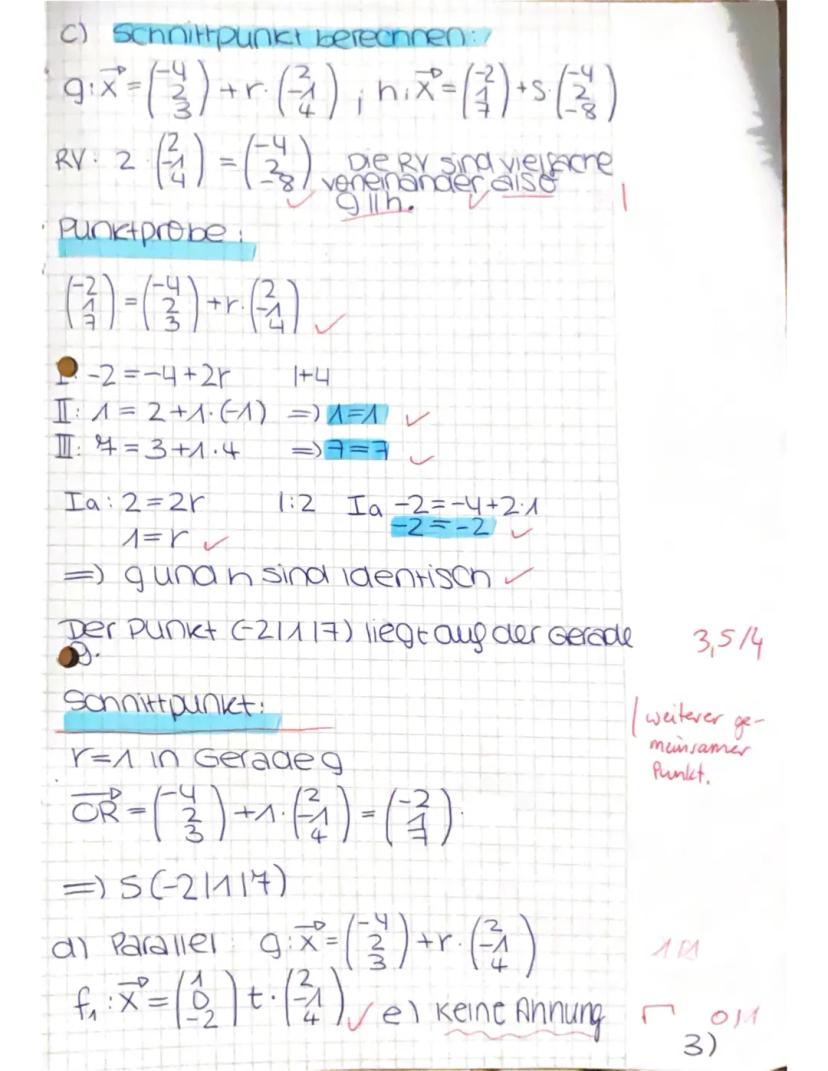 c) Schnittpunkt berechnen:
g: x⃗ = (-4 2 3) + r · (2 -1 4) ; h: x⃗ = (-2 1 7) + s · (-4 2 -8)
RV: 2 · (2 -1 4) = (-4 2 -8) Die RV sind vielfache
voneinander also
g || h. |
Punktprobe:
(-2 1 7) = (-4 2 3) + r · (2 -1 4)
I: -2 = -4 + 2r |+4
II: 1 = 2 + 1 · (-1) => 1=1
III: 7 = 3 + 1 · 4 => 7=7
Ia: 2 = 2r |:2 Ia -2 = -4 + 2·1
1 = r -2 = -2
=> g und h sind identisch
Der Punkt (-2|1|7) liegt auf der Gerade 3,5/4
g.
Schnittpunkt: weiterer ge-
meinsamer
Punkt.
r=1 in Gerade g
OR⃗ = (-4 2 3) + 1 · (2 -1 4) = (-2 1 7)
=> S(-2|1|7)
d) Parallel: g: x⃗ = (-4 2 3) + r · (2 -1 4)
f₁: x⃗ = (1 0 -2) t · (2 -1 4) e) Keine Ahnung
3)